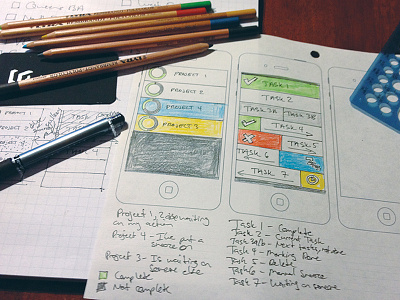 PROJECT 1
PROJECT 2
PROJECT 4
PROJECT 3
TASK 1
TASK 2
TASK 3A TASK 3B
TASK 4
TASK 5
TASK 6
TASK 7
Project 1, 2 are waiting
on my action
Project 4 - I've put a
snooze on
Project 3 - Is waiting on
someone else
Complete
Not complete
Task 1 - Complete
Task 2 - Current Task
Task 3A/b - Next tasks
Task 4 - Marking Done
Task 5 - Delete
Task 6 - Manual Snooze
Task 7 - Waiting on someone